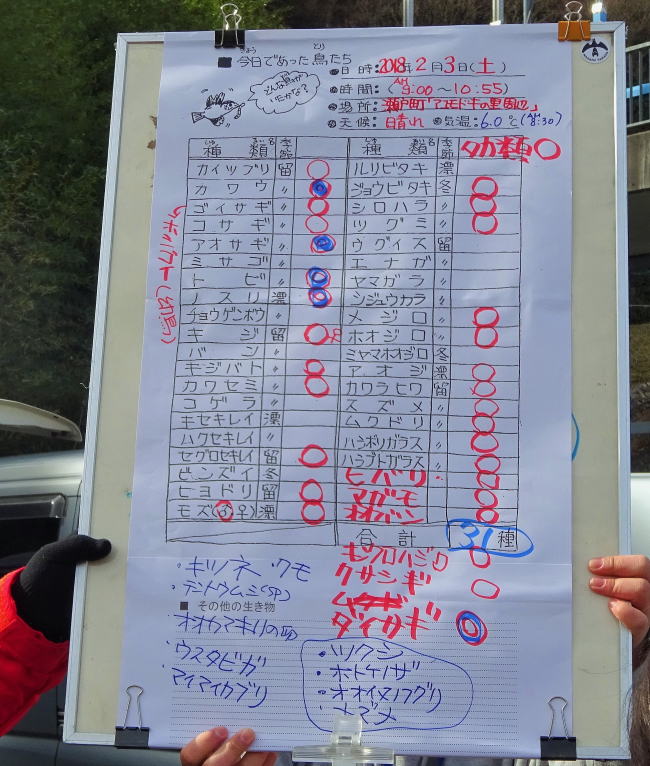 ■ 今日であった鳥たち
きょう とり
どんな鳥がいたかな?
・日時:2018年2月3日(土)
・時間:(AM 9:00~10:55)
・場所:瀬戸町「アユモドキの里周辺」
・天候:晴れ ・気温:6.0℃(8:30)
種類名 季節 種類名 季節 タカ類 ○
カイツブリ 留 ○ ルリビタキ 漂
カワウ 〃 ○ ジョウビタキ 冬 ○
ゴイサギ 〃 ○ シロハラ 〃 ○
コサギ 〃 ○ ツグミ 〃 ○
アオサギ 〃 ○ ウグイス 留
ミサゴ 〃 エナガ 〃
トビ 〃 ○ ヤマガラ 〃
ノスリ 漂 ○ シジュウカラ 〃
チョウゲンボウ 〃 メジロ 〃 ○
キジ 留 ○ ホオジロ 〃 ○
バン 〃 ミヤマホオジロ 冬
キジバト 〃 ○ アオジ 漂 ○
カワセミ 〃 ○ カワラヒワ 留 ○
コゲラ 〃 スズメ 〃 ○
キセキレイ 漂 ムクドリ 〃 ○
ハクセキレイ 〃 ハシボソガラス 〃 ○
セグロセキレイ 留 ○ ハシブトガラス 〃 ○
ビンズイ 冬 ヒバリ ○
ヒヨドリ 留 ○ マガモ ○
モズ(♂♀) 漂 ○ オオバン ○
合計 31種
(幼鳥)
ホシハジロ ○
クサシギ ○
ダイサギ ○
・キツネ・クモ
・テントウムシ(SP)
■ その他の生き物
・オオカマキリの卵
・ウスタビガ
・マイマイカブリ
・ツクシ
・ホトケノザ
・オオイヌノフグリ